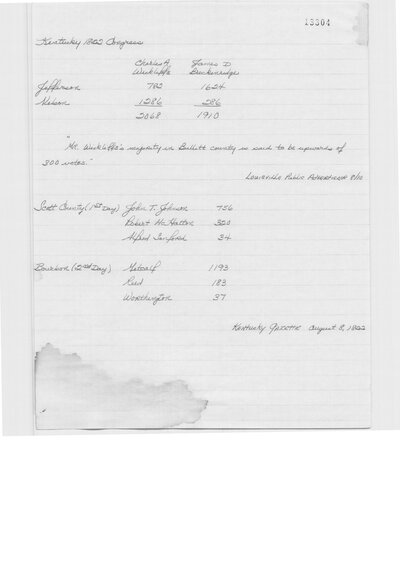 13304
Kentucky 1822 Congress
Charles A. James D
Wickliffe Breckenridge
Jefferson 782 1624
Nelson 1286 286
2068 1910
"Mr. Wickliffe's majority in Bullitt county is said to be upwards of
300 votes."
Louisville Public Advertiser 8/10
Scott County (1st Day) John T. Johnson 756
Robert McHatton 320
Alfred Sanford 34
Bourbon (2nd Day) Metcalf 1193
Reed 183
Worthington 37
Kentucky Gazette August 8, 1822